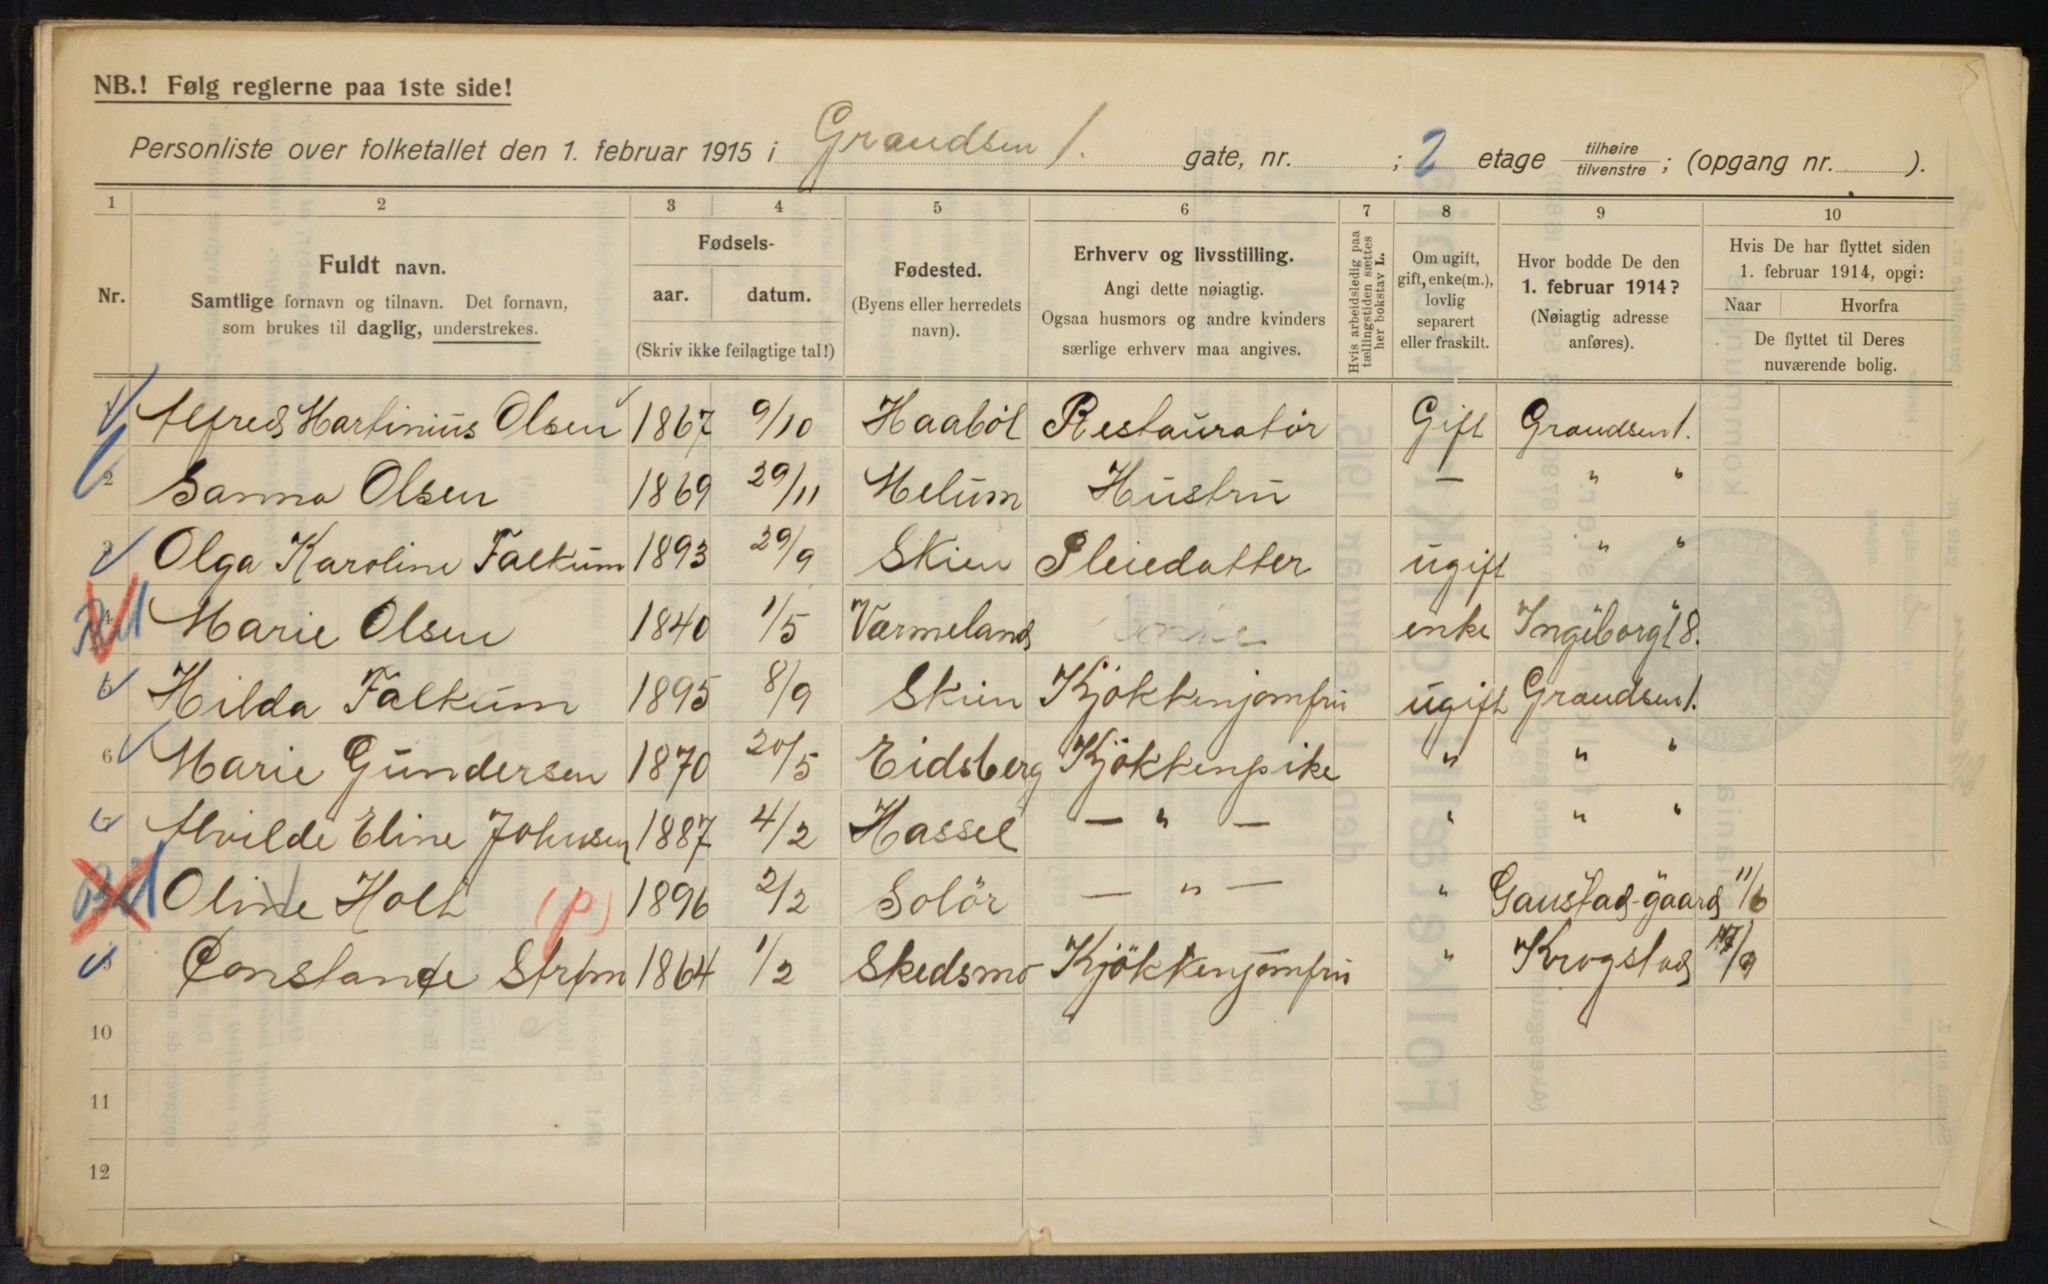 NB.! Følg reglerne paa 1ste side!
Personliste over folketallet den 1. februar 1915 i Graudsen 1. gate, nr. ; 2 etage tilhøire/tilvenstre ; (opgang nr. ).
1 2 3 4 5 6 7 8 9 10
Nr.
Fuldt navn.
Samtlige fornavn og tilnavn. Det fornavn,
som brukes til daglig, understrekes.
Fødsels-
aar. datum.
(Skriv ikke feilagtige tal!)
Fødested.
(Byens eller herredets
navn).
Erhverv og livsstilling.
Angi dette nøiagtig.
Ogsaa husmors og andre kvinders
særlige erhverv maa angives.
Hvis arbeidsledig paa
tællingstiden sættes
her bokstav L.
Om ugift,
gift, enke(m.),
lovlig
separert
eller fraskilt.
Hvor bodde De den
1. februar 1914?
(Nøiagtig adresse
anføres).
Hvis De har flyttet siden
1. februar 1914, opgi:
Naar Hvorfra
De flyttet til Deres
nuværende bolig.
1 Alfred Martinius Olsen 1867 9/10 Haaböl Restauratör Gift Graudsen 1.
2 Sanna Olsen 1869 29/11 Melum Hustru — " "
3 Olga Karoline Falkum 1893 29/9 Skien Pleiedatter ugift " "
4 Marie Olsen 1840 1/5 Värmeland enke Ingeborgt 8.
5 Hilda Falkum 1895 8/9 Skien Kjökkenjomfru ugift Graudsen 1.
6 Marie Gundersen 1870 20/5 Eidsberg Kjökkenpike " " "
7 Alvilde Eline Johnsen 1887 4/2 Hassel — " — " " "
Oline Holt (p) 1896 2/2 Solör — " — " Gaustad-gaard 11/6
9 Constance Strøm 1864 1/2 Skedsmo Kjökkenjomfru " Krogstad 17/9
10
11
12